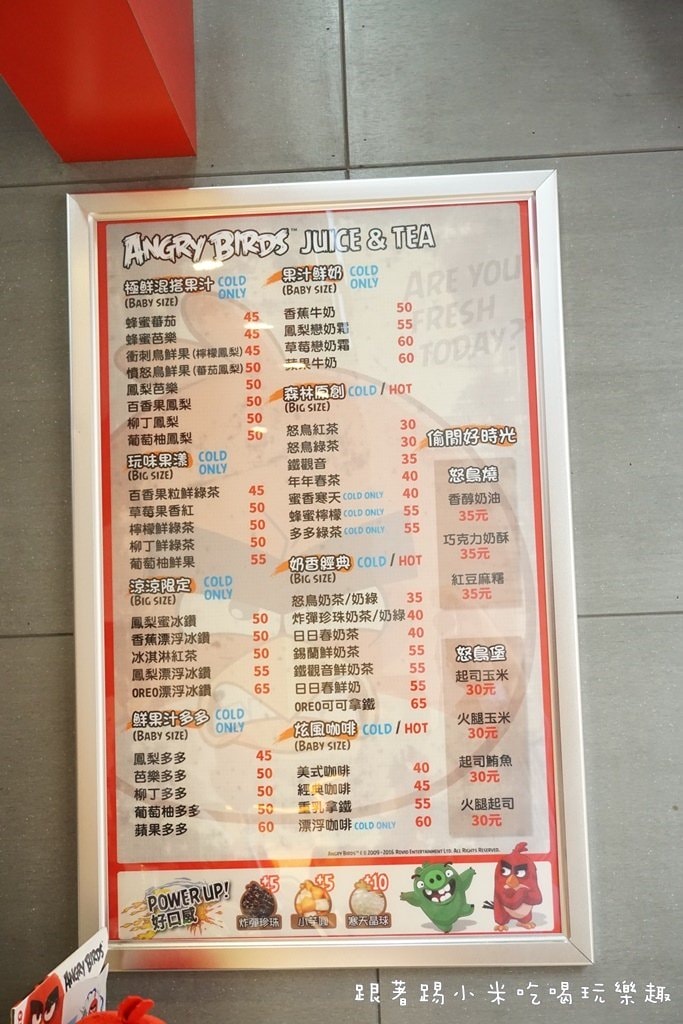 ANGRY BIRDS™ JUICE & TEA
ARE YOU
FRESH
TODAY?
極鮮混搭果汁 COLD ONLY
(BABY SIZE)
蜂蜜蕃茄 45
蜂蜜芭樂 45
衝刺鳥鮮果(檸檬鳳梨) 45
憤怒鳥鮮果(蕃茄鳳梨) 50
鳳梨芭樂 50
百香果鳳梨 50
柳丁鳳梨 50
葡萄柚鳳梨 50
玩味果漾 COLD ONLY
(BIG SIZE)
百香果粒鮮綠茶 45
草莓果香紅 50
檸檬鮮綠茶 50
柳丁鮮綠茶 50
葡萄柚鮮果 55
涼涼限定 COLD ONLY
(BIG SIZE)
鳳梨蜜冰鑽 50
香蕉漂浮冰鑽 50
冰淇淋紅茶 50
鳳梨漂浮冰鑽 55
OREO漂浮冰鑽 65
鮮果汁多多 COLD ONLY
(BABY SIZE)
鳳梨多多 45
芭樂多多 50
柳丁多多 50
葡萄柚多多 50
蘋果多多 60
果汁鮮奶 COLD ONLY
(BABY SIZE)
香蕉牛奶 50
鳳梨戀奶霜 55
草莓戀奶霜 60
蘋果牛奶 60
森林原創 COLD / HOT
(BIG SIZE)
怒鳥紅茶 30
怒鳥綠茶 30
鐵觀音 35
年年春茶 40
蜜香寒天 COLD ONLY 40
蜂蜜檸檬 COLD ONLY 55
多多綠茶 COLD ONLY 55
奶香經典 COLD / HOT
(BIG SIZE)
怒鳥奶茶/奶綠 35
炸彈珍珠奶茶/奶綠 40
日日春奶茶 40
錫蘭鮮奶茶 55
鐵觀音鮮奶茶 55
日日春鮮奶 55
OREO可可拿鐵 65
炫風咖啡 COLD / HOT
(BABY SIZE)
美式咖啡 40
經典咖啡 45
重乳拿鐵 55
漂浮咖啡 COLD ONLY 60
偷閒好時光
怒鳥燒
香醇奶油
35元
巧克力奶酥
35元
紅豆麻糬
35元
怒鳥堡
起司玉米
30元
火腿玉米
30元
起司鮪魚
30元
火腿起司
30元
ANGRY BIRDS™ & © 2009-2016 ROVIO ENTERTAINMENT LTD. ALL RIGHTS RESERVED.
POWER UP!
好口感
+5
炸彈珍珠
+5
小芋圓
+10
寒天晶球
ANGRY BIRDS
跟著踢小米吃喝玩樂趣